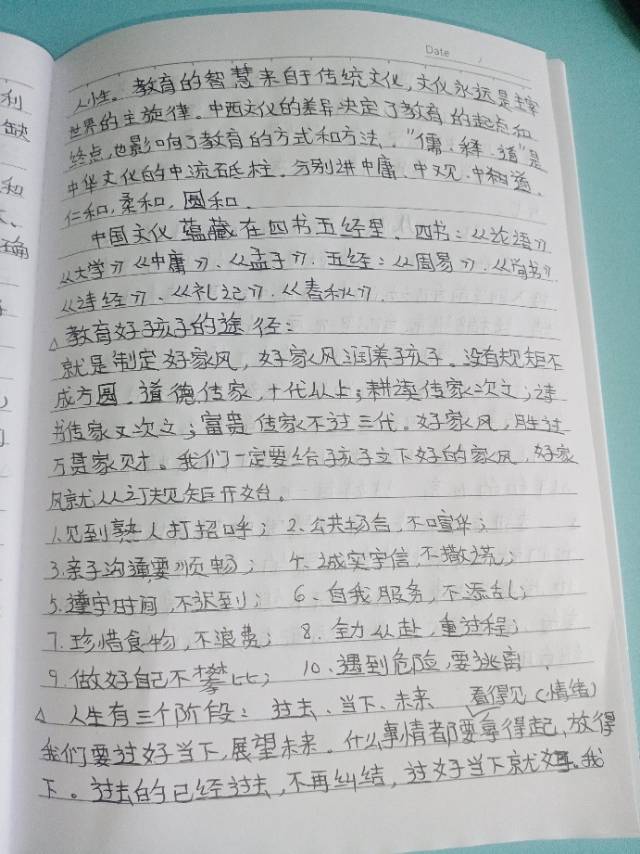 Date
人生。教育的智慧来自于传统文化,文化永远是主宰
世界的主旋律。中西文化的差异决定了教育的起点和
终点,也影响了教育的方式和方法。"儒、释、道"是
中华文化的中流砥柱。分别讲中庸、中观、中和道。
仁和,柔和,圆和。
中国文化蕴藏在四书五经里、四书:《论语》
《大学》《中庸》、《孟子》.五经:《周易》.《尚书》
《诗经》、《礼记》.《春秋》
△教育好孩子的途径:
就是制定好家风,好家风润养子孩子。没有规矩不
成方圆、道德传家,十代以上;耕读传家次之;诗
书传家又次之;富贵传家不过三代。好家风,胜过
万贯家财。我们一定要给孩子立下好的家风,好家
风就从立规矩开始。
1.见到熟人打招呼; 2、公共场合,不喧华;
3.亲子沟通要顺畅; 4、诚实守信,不撒谎;
5.遵守时间,不迟到; 6、自我服务,不添乱;
7.珍惜食物,不浪费; 8.全力以赴,重过程;
9.做好自己不攀比; 10、遇到危险,要逃离.
△人生有三个阶段:过去、当下、未来 看得见(情绪)
我们要过好当下,展望未来。什么事情都要拿得起,放得
下。过去的已经过去,不再纠结,过好当下就好。我
利
缺
和
确